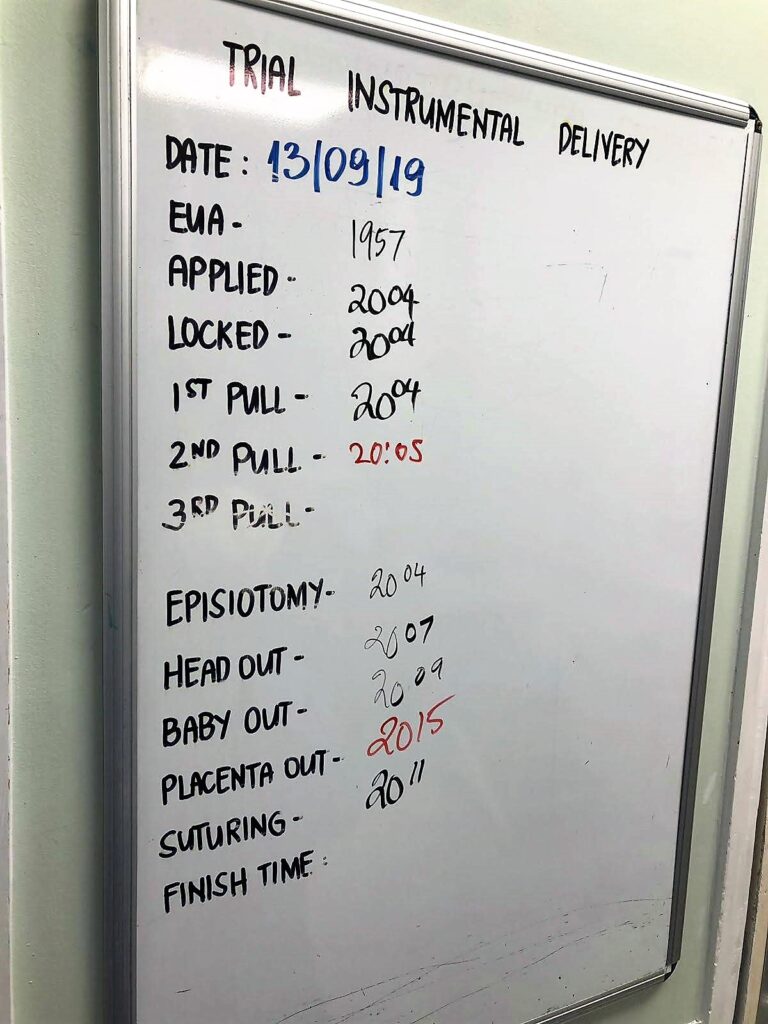 TRIAL INSTRUMENTAL DELIVERY
DATE: 13/09/19
EUA- 1957
APPLIED- 2004
LOCKED- 2004
1ST PULL- 2004
2ND PULL- 20:05
3RD PULL-
EPISIOTOMY- 2004
HEAD OUT- 2007
BABY OUT- 2009
PLACENTA OUT- 2015
SUTURING- 2011
FINISH TIME: